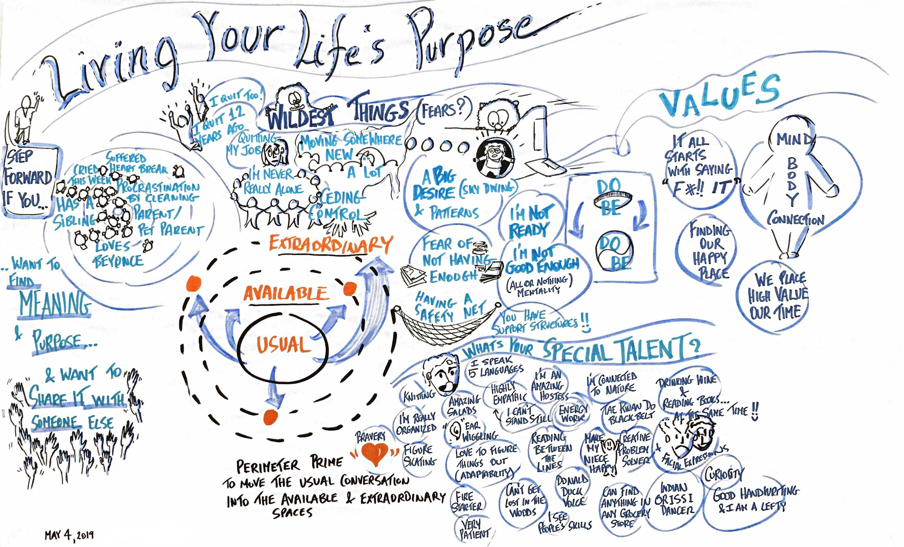 Living Your Life's Purpose
STEP
FORWARD
IF YOU...
SUFFERED
HEART BREAK
CRIED
THIS WEEK
PROCRASTINATION
BY CLEANING
HAS A
SIBLING
PARENT/
PET PARENT
LOVES
BEYONCE
..WANT TO
FIND
MEANING
&
PURPOSE...
& WANT TO
SHARE IT WITH
SOMEONE ELSE
MAY 4, 2019
I QUIT TOO!
I QUIT 12
YEARS AGO
WILDEST THINGS (FEARS?)
QUITTING
MY JOB
MOVING SOMEWHERE
NEW
A LOT
I'M NEVER
REALLY ALONE
CEDING
CONTROL
A BIG
DESIRE (SKY DIVING)
& PATTERNS
FEAR OF
NOT HAVING
ENOUGH
HAVING A
SAFETY NET
I'M NOT
READY
I'M NOT
GOOD ENOUGH
(ALL OR NOTHING)
MENTALITY
YOU HAVE
SUPPORT STRUCTURES!!
DO
BE
DO
BE
EXTRAORDINARY
AVAILABLE
USUAL
PERIMETER PRIME
TO MOVE THE USUAL CONVERSATION
INTO THE AVAILABLE & EXTRAORDINARY
SPACES
VALUES
IT ALL
STARTS
WITH SAYING
F*!! IT
FINDING
OUR
HAPPY
PLACE
MIND
BODY
CONNECTION
WE PLACE
HIGH VALUE
OUR TIME
WHAT'S YOUR SPECIAL TALENT?
KNITTING
I SPEAK
5 LANGUAGES
I'M AN
AMAZING
HOSTESS
I'M CONNECTED
TO NATURE
DRINKING WINE
&
READING BOOKS...
AT THE SAME TIME!!
I'M REALLY
ORGANIZED
AMAZING
SALADS
HIGHLY
EMPATHIC
I CAN'T
STAND STILL
ENERGY
WORK
TAE KWAN DO
BLACK BELT
EAR
WIGGLING
BRAVERY
FIGURE
SKATING
LOVE TO FIGURE
THINGS OUT
(ADAPTABILITY)
READING
BETWEEN
THE
LINES
MAKE
MY
NIECE
HAPPY
CREATIVE
PROBLEM
SOLVER
FACIAL EXPRESSIONS
CURIOSITY
FIRE
STARTER
CAN'T GET
LOST IN THE
WOODS
DONALD
DUCK
VOICE
CAN FIND
ANYTHING IN
ANY GROCERY
STORE
INDIAN
ORISSI
DANCER
GOOD HANDWRITING
& I AM A LEFTY
VERY
PATIENT
I SEE
PEOPLE'S SKILLS